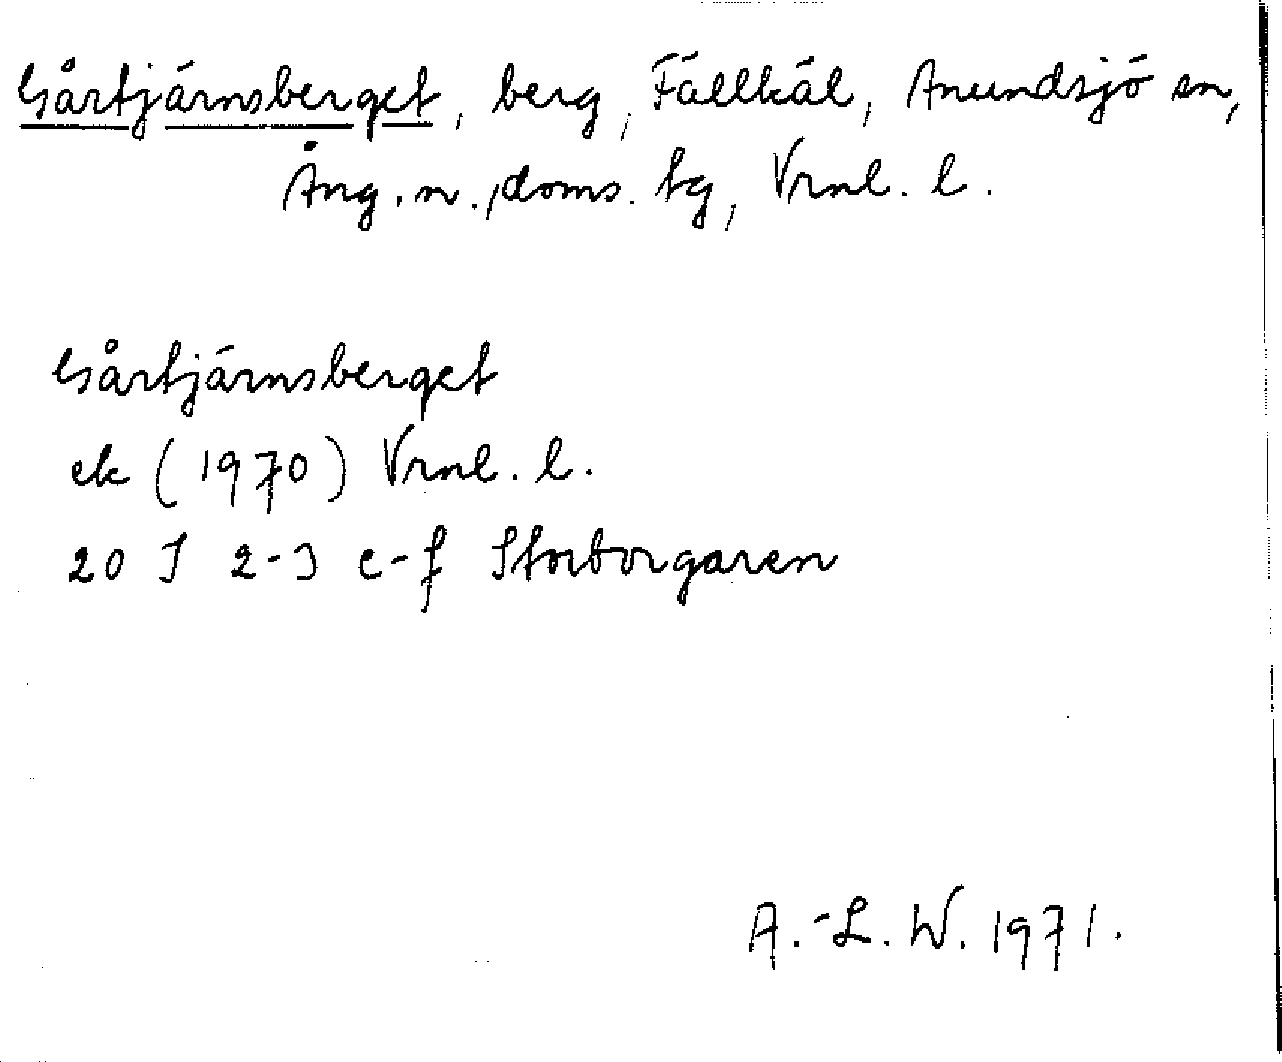 Gårtjärnsberget, berg, Fällkäl, Anundsjö sn,
Ång. n., doms. tg, Vrnl. l.
Gårtjärnsberget
ek (1970) Vrnl. l.
20 I 2-3 e-f Storborgaren
A.-L. W. 1971.